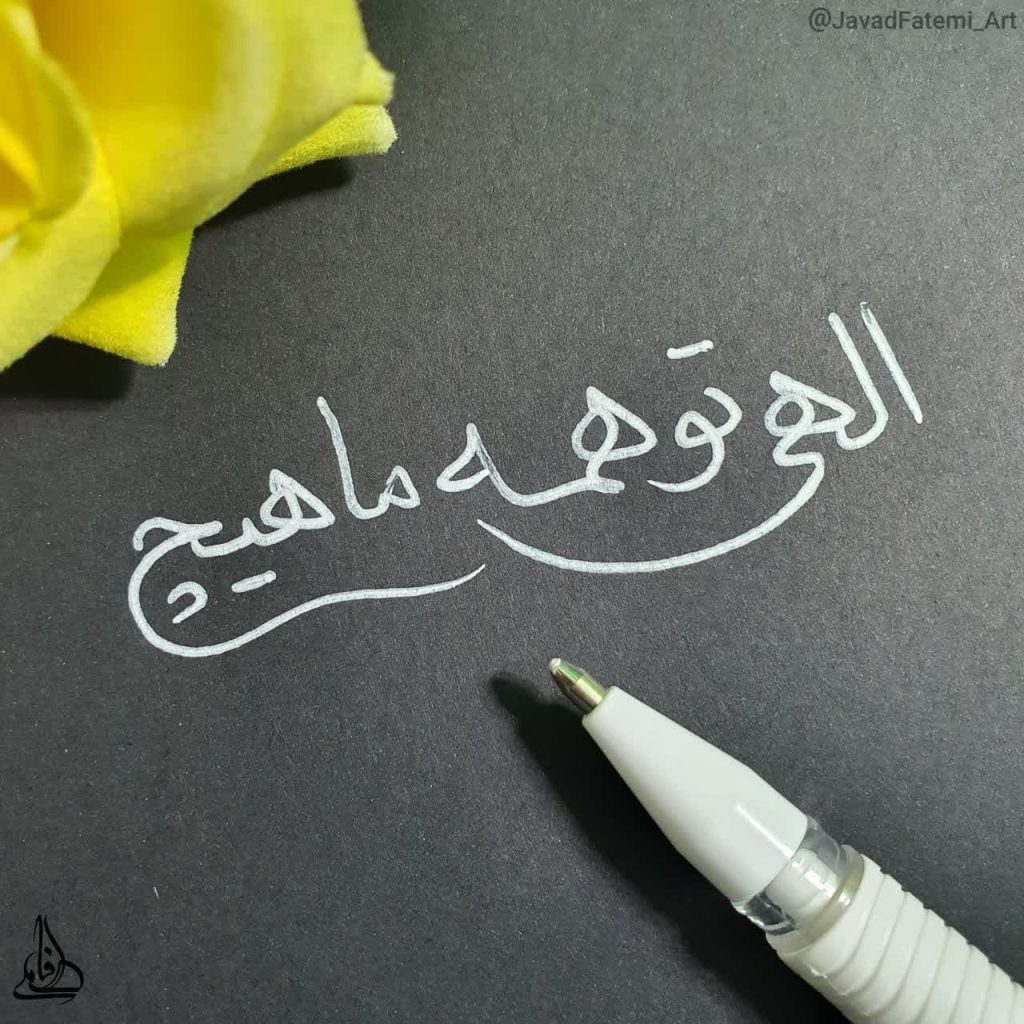 @JavadFatemi_Art
الهی تو همه ما هیچ